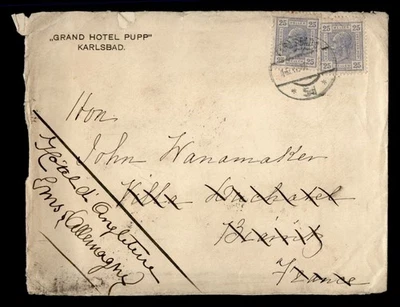 „GRAND HOTEL PUPP"
KARLSBAD.
25 25
25 25 25 25
Hon
John Wanamaker
Villa
France
Hôtel d'Angleterre
Ems, Allemagne